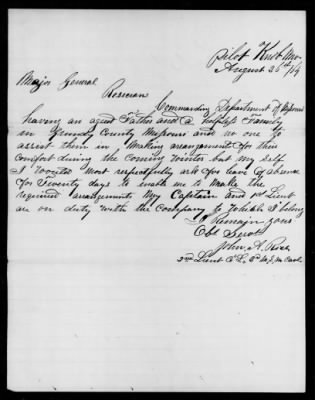 Pilot Knob Mo.
August 26th /64
Major General
Rosecran
Commanding Department of Missouri
having an aged Father and a helpless Family
in Grundy County Missouri and no one to
assist them in Making arrangements for their
Comfort during the Coming Winter but my self
I Would Most respectfully ask for leave of absence
for Twenty days to enable me to Make the
required arrangements My Captain and 1st Lieut
are on duty with the Company to Which I belong
I Remain your
Obt Servt
John A. Rice
2nd Lieut Co 3d M.S.M. Cav